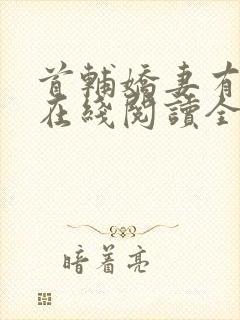 首輔嬌妻有
在綫閱讀全
暗着亮